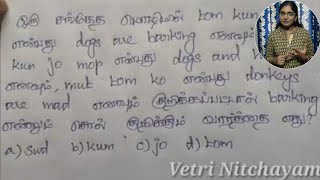 ஒரு சங்கேத மொழியில் tom kun
என்பது dogs are barking எனவும்
kun jo mop என்பது dogs and h
எனவும், mut tom ko என்பது donkeys
are mad எனவும் குறிக்கப்பட்டால் barking
என்னும் சொல் குறிக்கும் வார்த்தை எது?
a) sud b) kun c) jo d) tom
Vetri Nitchayam